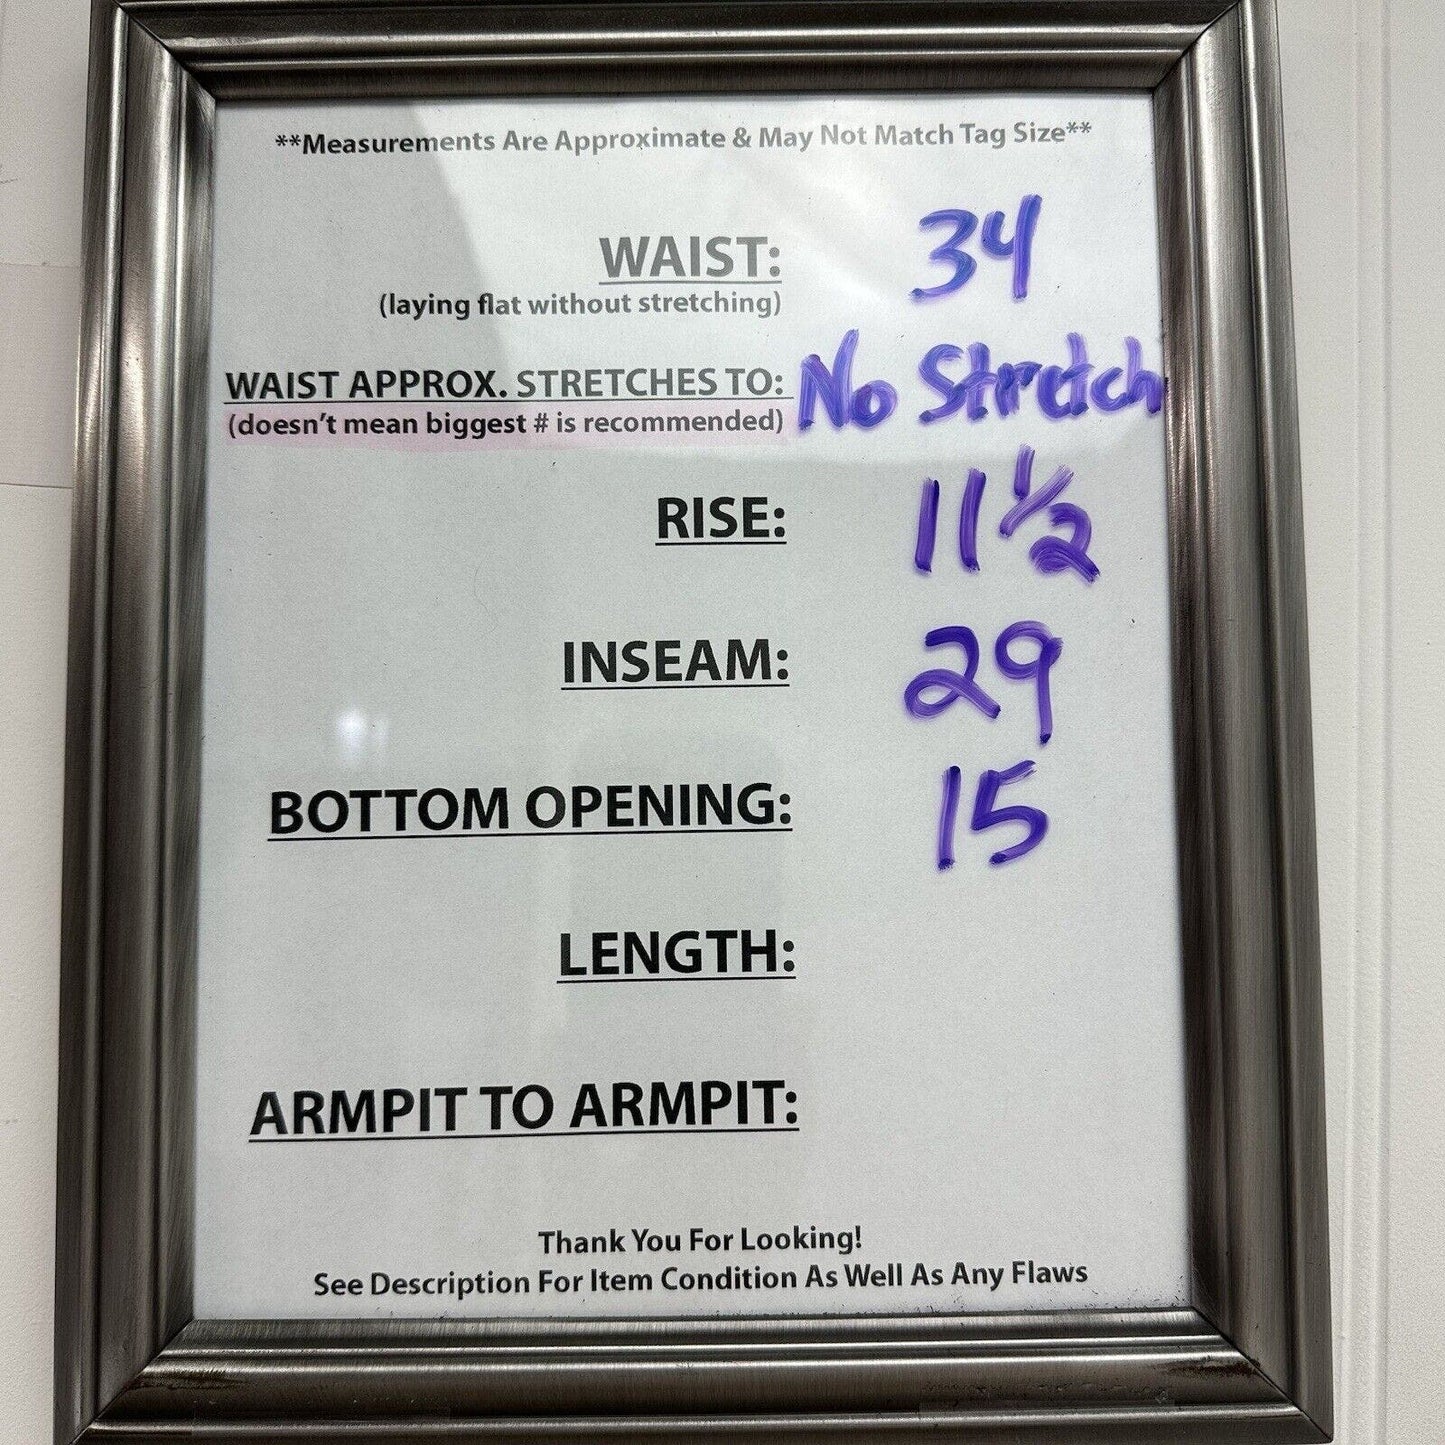 **Measurements Are Approximate & May Not Match Tag Size**
WAIST: 34
(laying flat without stretching)
WAIST APPROX. STRETCHES TO: No Stretch
(doesn't mean biggest # is recommended)
RISE: 11 1/2
INSEAM: 29
BOTTOM OPENING: 15
LENGTH:
ARMPIT TO ARMPIT:
Thank You For Looking!
See Description For Item Condition As Well As Any Flaws